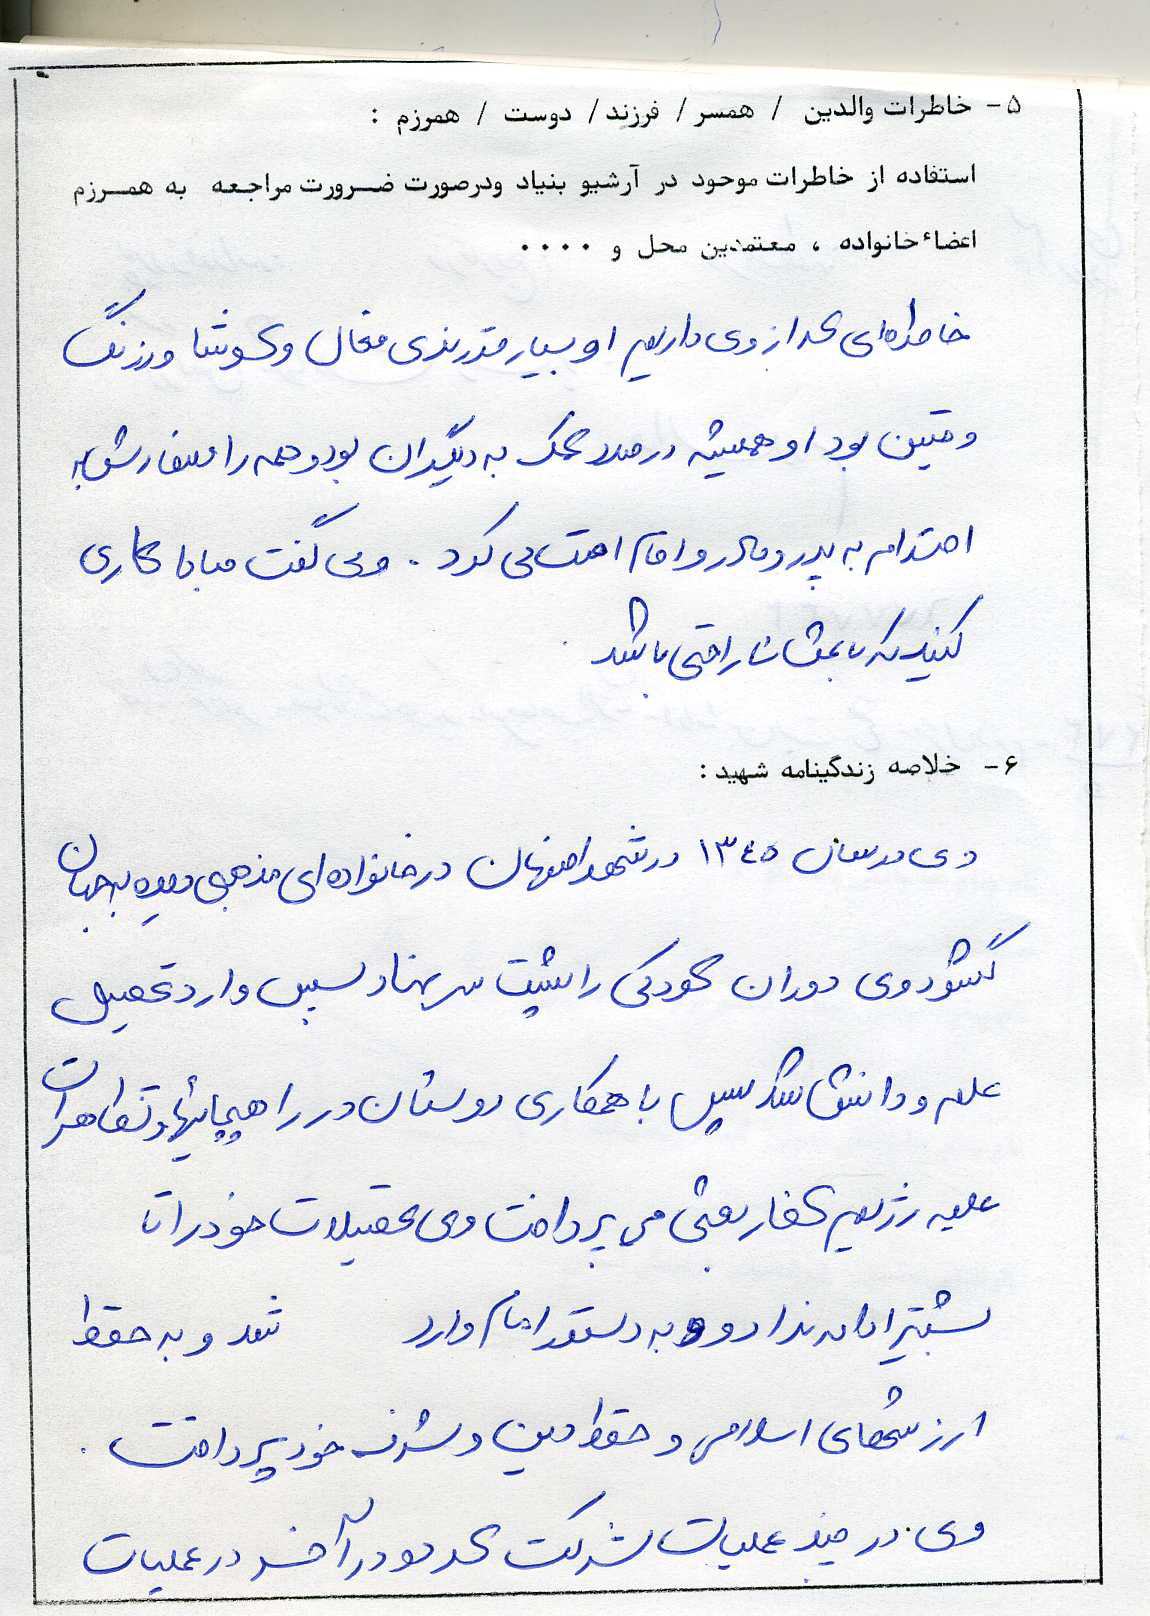 ۵- خاطرات والدین / همسر / فرزند / دوست / همرزم :
استفاده از خاطرات موجود در آرشیو بنیاد ودرصورت ضرورت مراجعه به همرزم
اعضاءخانواده ، معتمدین محل و ۰۰۰۰
خاطره‌ای که از وی داریم او بسیار فرزندی فعال و کوشا و زرنگ
و متین بود او همیشه درصدد کمک به دیگران بود و همه را سفارش به
احترام به پدر و مادر و امام امت می کرد . و می گفت مبادا کاری
کنید که باعث ناراحتی باشد
۶- خلاصه زندگینامه شهید :
وی در سال ۱۳۴۵ در شهر اصفهان در خانواده ای مذهبی دیده به جهان
گشود وی دوران کودکی را پشت سر نهاد سپس وارد تحصیل
علم و دانش شد سپس با همکاری دوستان در راهپیمائیها و تظاهرات
علیه رژیم کفار بعثی می پرداخت وی تحصیلات خود را تا
بیشتر ادامه نداد و به دستور امام وارد شد و به حفظ
ارزشهای اسلامی و حفظ دین و شرف خود پرداخت .
وی در چند عملیات شرکت کرد و در آخر در عملیات